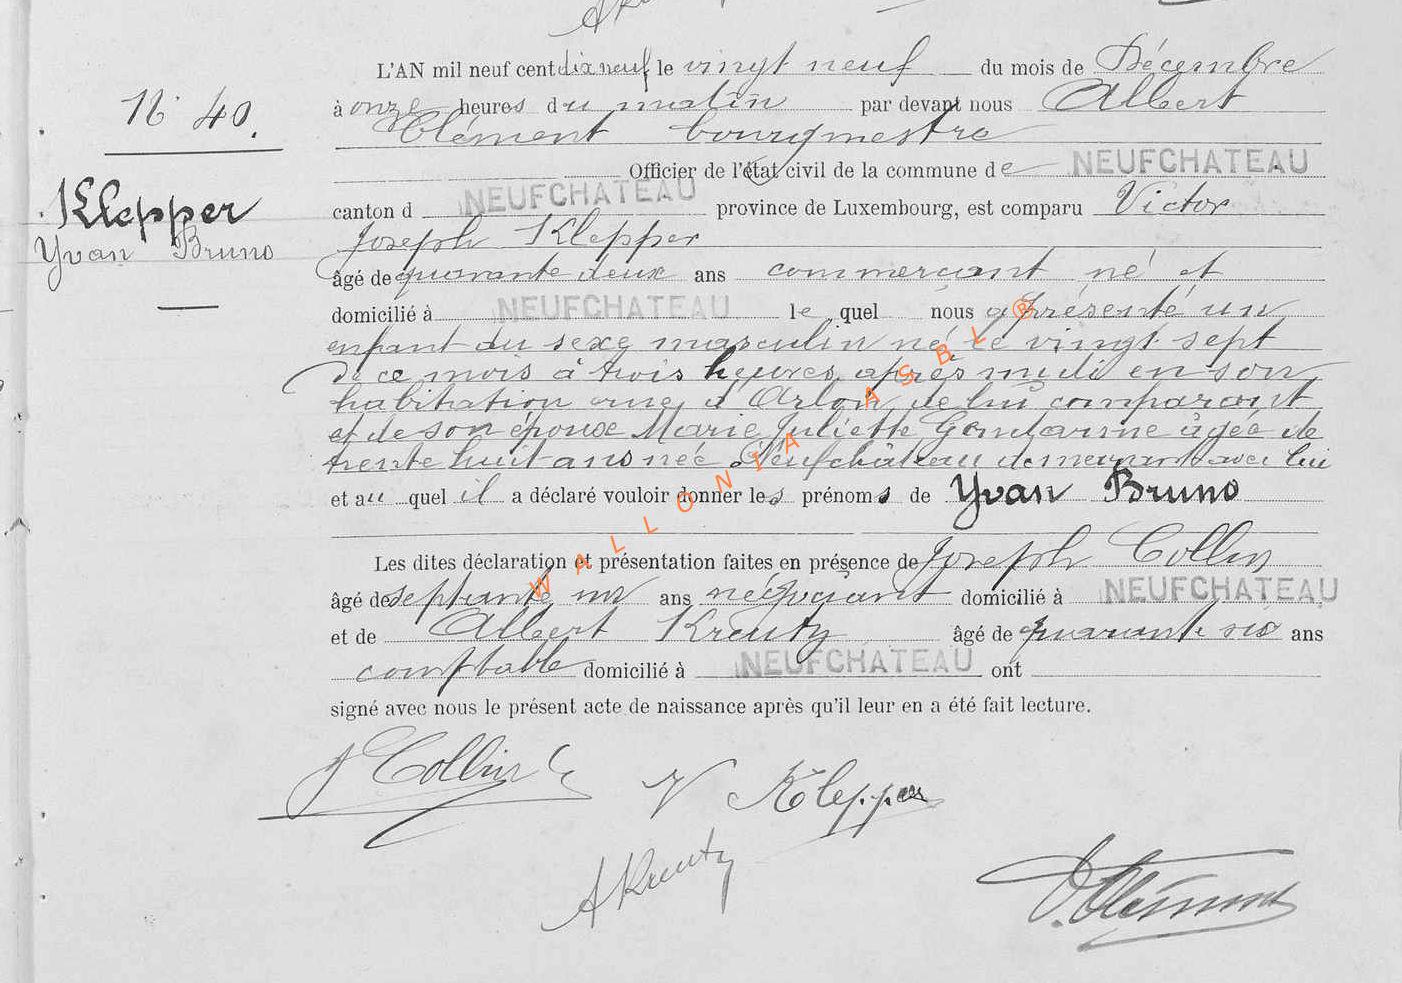 N° 40.
Klepper
Yvan Bruno
L'AN mil neuf cent dix neuf, le vingt neuf du mois de Décembre
à onze heures du matin par devant nous Albert
Clément bourgmestre
Officier de l'état civil de la commune de NEUFCHATEAU
canton d NEUFCHATEAU province de Luxembourg, est comparu Victor
Joseph Klepper
âgé de quarante deux ans commerçant né et
domicilié à NEUFCHATEAU le quel nous a présenté un
enfant du sexe masculin né le vingt sept
de ce mois à trois heures après midi en son
habitation rue d'Arlon, de lui comparant
et de son épouse Marie Juliette Gendarme âgée de
trente huit ans née à Neufchâteau demeurant avec lui
et au quel il a déclaré vouloir donner les prénoms de Yvan Bruno
Les dites déclaration et présentation faites en présence de Joseph Collin
âgé de septante un ans négociant domicilié à NEUFCHATEAU
et de Albert Kreutz âgé de quarante six ans
comptable domicilié à NEUFCHATEAU ont
signé avec nous le présent acte de naissance après qu'il leur en a été fait lecture.
J Collin
V Klepper
A Kreutz
A. Clément
WALLONIA ASBL ®